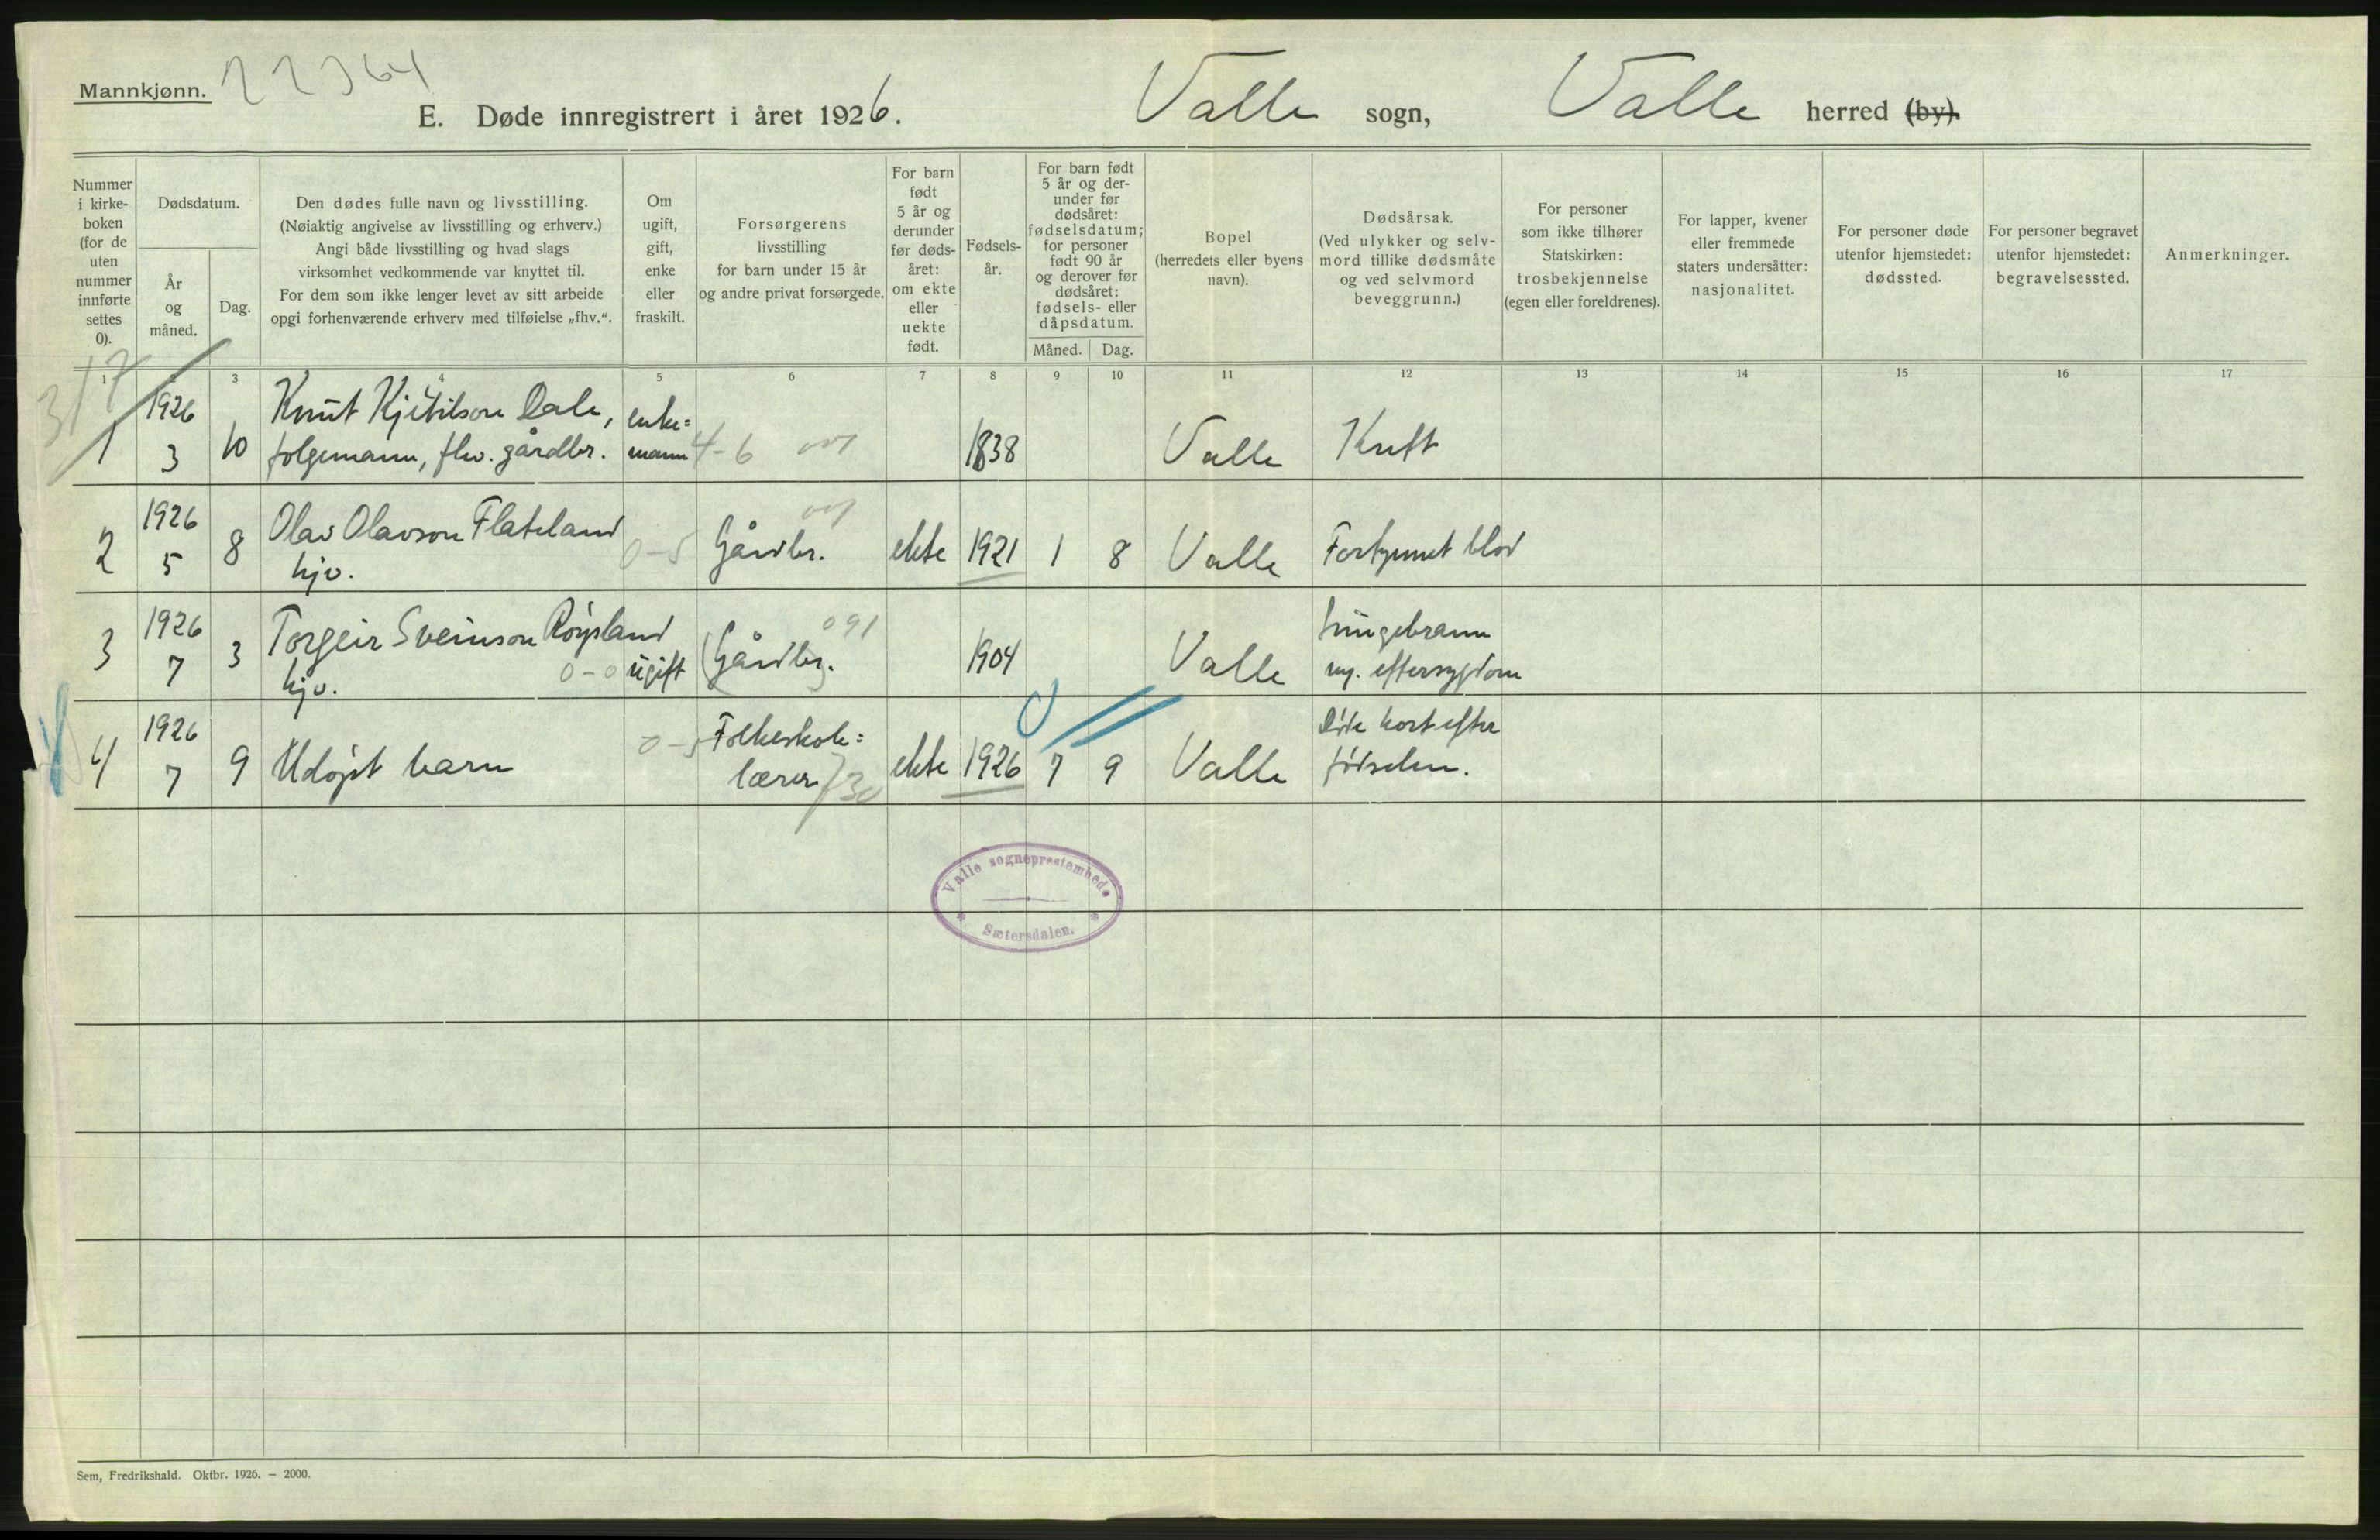 Mannkjønn.
22364
E. Døde innregistrert i året 1926. Valle sogn, Valle herred (by).
Nummer i kirke- boken (for de uten nummer innførte settes 0).
Dødsdatum.
År og måned.
Dag.
Den dødes fulle navn og livsstilling.
(Nøiaktig angivelse av livsstilling og erhverv.)
Angi både livsstilling og hvad slags
virksomhet vedkommende var knyttet til.
For dem som ikke lenger levet av sitt arbeide
opgi forhenværende erhverv med tilføielse „fhv.“.
Om ugift, gift, enke eller fraskilt.
Forsørgerens
livsstilling
for barn under 15 år
og andre privat forsørgede.
For barn født 5 år og derunder før døds- året: om ekte eller uekte født.
Fødsels- år.
For barn født 5 år og der- under før dødsåret: fødselsdatum; for personer født 90 år og derover før dødsåret: fødsels- eller dåpsdatum.
Måned. Dag.
Bopel
(herredets eller byens
navn).
Dødsårsak.
(Ved ulykker og selv-
mord tillike dødsmåte
og ved selvmord
beveggrunn.)
For personer
som ikke tilhører
Statskirken:
trosbekjennelse
(egen eller foreldrenes).
For lapper, kvener
eller fremmede
staters undersåtter:
nasjonalitet.
For personer døde
utenfor hjemstedet:
dødssted.
For personer begravet
utenfor hjemstedet:
begravelsessted.
Anmerkninger.
317
1 3 4 5 6 7 8 9 10 11 12 13 14 15 16 17
1926 Knut Kjetilson Dale, enke=
1 3 10 folgemann, fhv. gårdbr. mann 4-6 1838 Valle Kreft
1926 Olav Olavson Flateland
2 5 8 hjv. 0-5 Gårdbr. ekte 1921 1 8 Valle Fortynnet blod
1926 Torgeir Sveinson Røysland 091 Lungebrann
3 7 3 hjv. 0-0 ugift (Gårdbr.) 1904 Valle og. eftersygdom
1926 Folkeskole= Døde kort efter
4 7 9 Udøpt barn 0-5 lærer 730 ekte 1926 7 9 Valle fødselen.
Valle sogneprestembede
Sætersdalen.
Sem, Fredrikshald. Oktbr. 1926. — 2000.